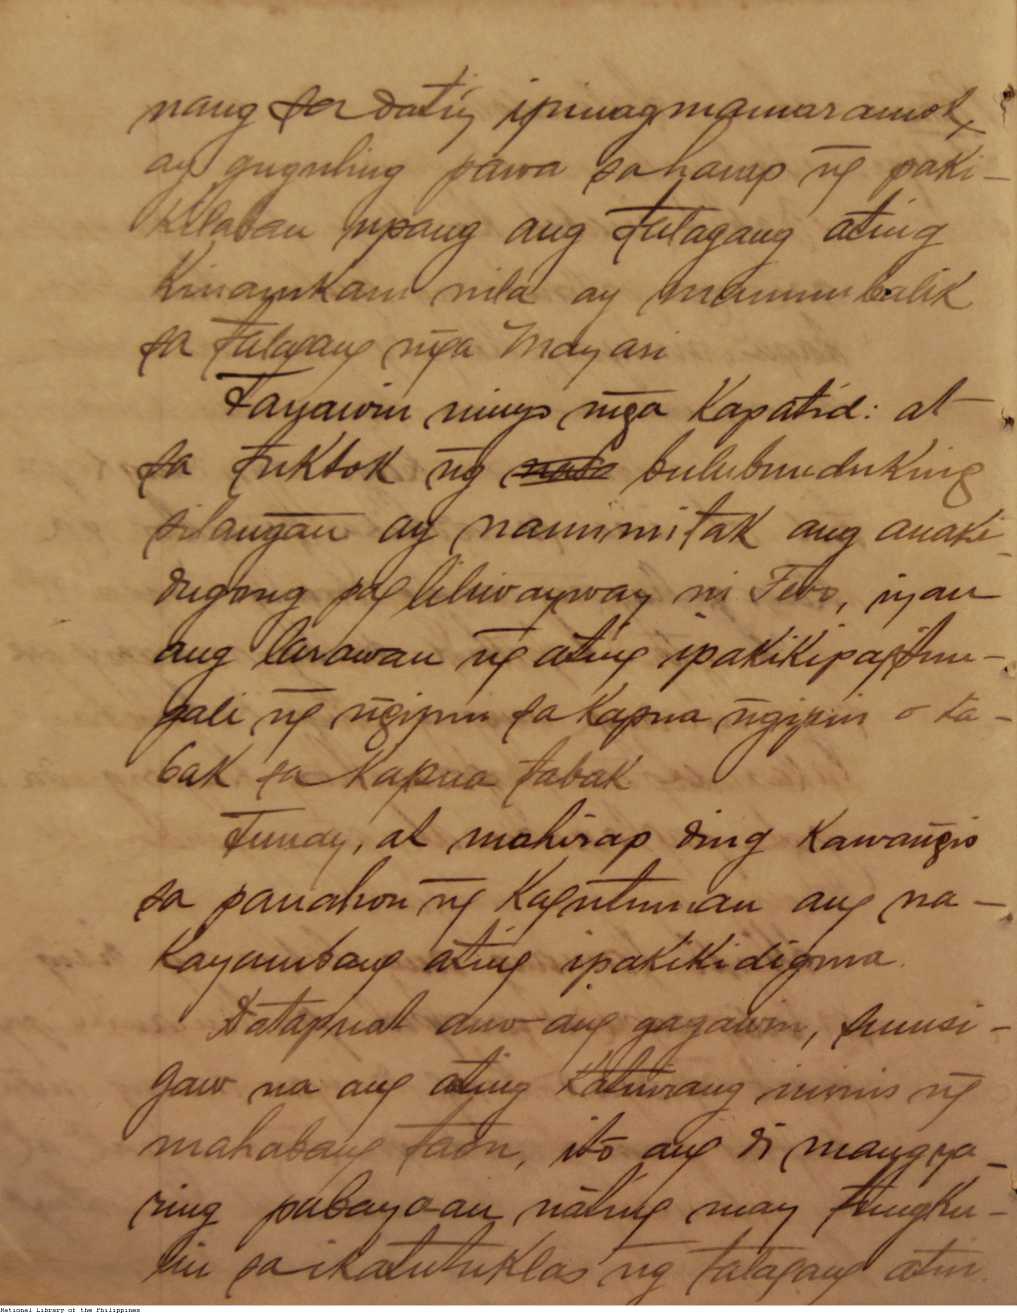 nang sa dating ipinagmamaramot,
ay guguling pawa sa harap ng paki-
kilaban upang ang talagang ating
kinamkam nila ay manumbalik
sa talagang mga Mayari
Tanawin ninyo mḡa Kapatid: at
sa tuktok ng bulubunduking
silangan ay namimitak ang anaki
dugong pagliliwayway ni Febo, iyan
ang larawan ng ating ipakikipagtun-
gali ng n̄gipin sa kapua n̄gipin o ta-
bak sa kapua tabak
Tunay, at mahirap ding kawan̄gis
sa panahon n̄g Kagutuman ang na-
kayambang ating ipakikidigma.
Datapuat ano ang gagawin, sumisi-
gaw na ang ating Katuirang ininis n̄g
mahabang taon, ito ang di mangya-
ring pabayaan nating may tungku-
lin sa ikatutuklas ng talagang atin.
National Library of the Philippines